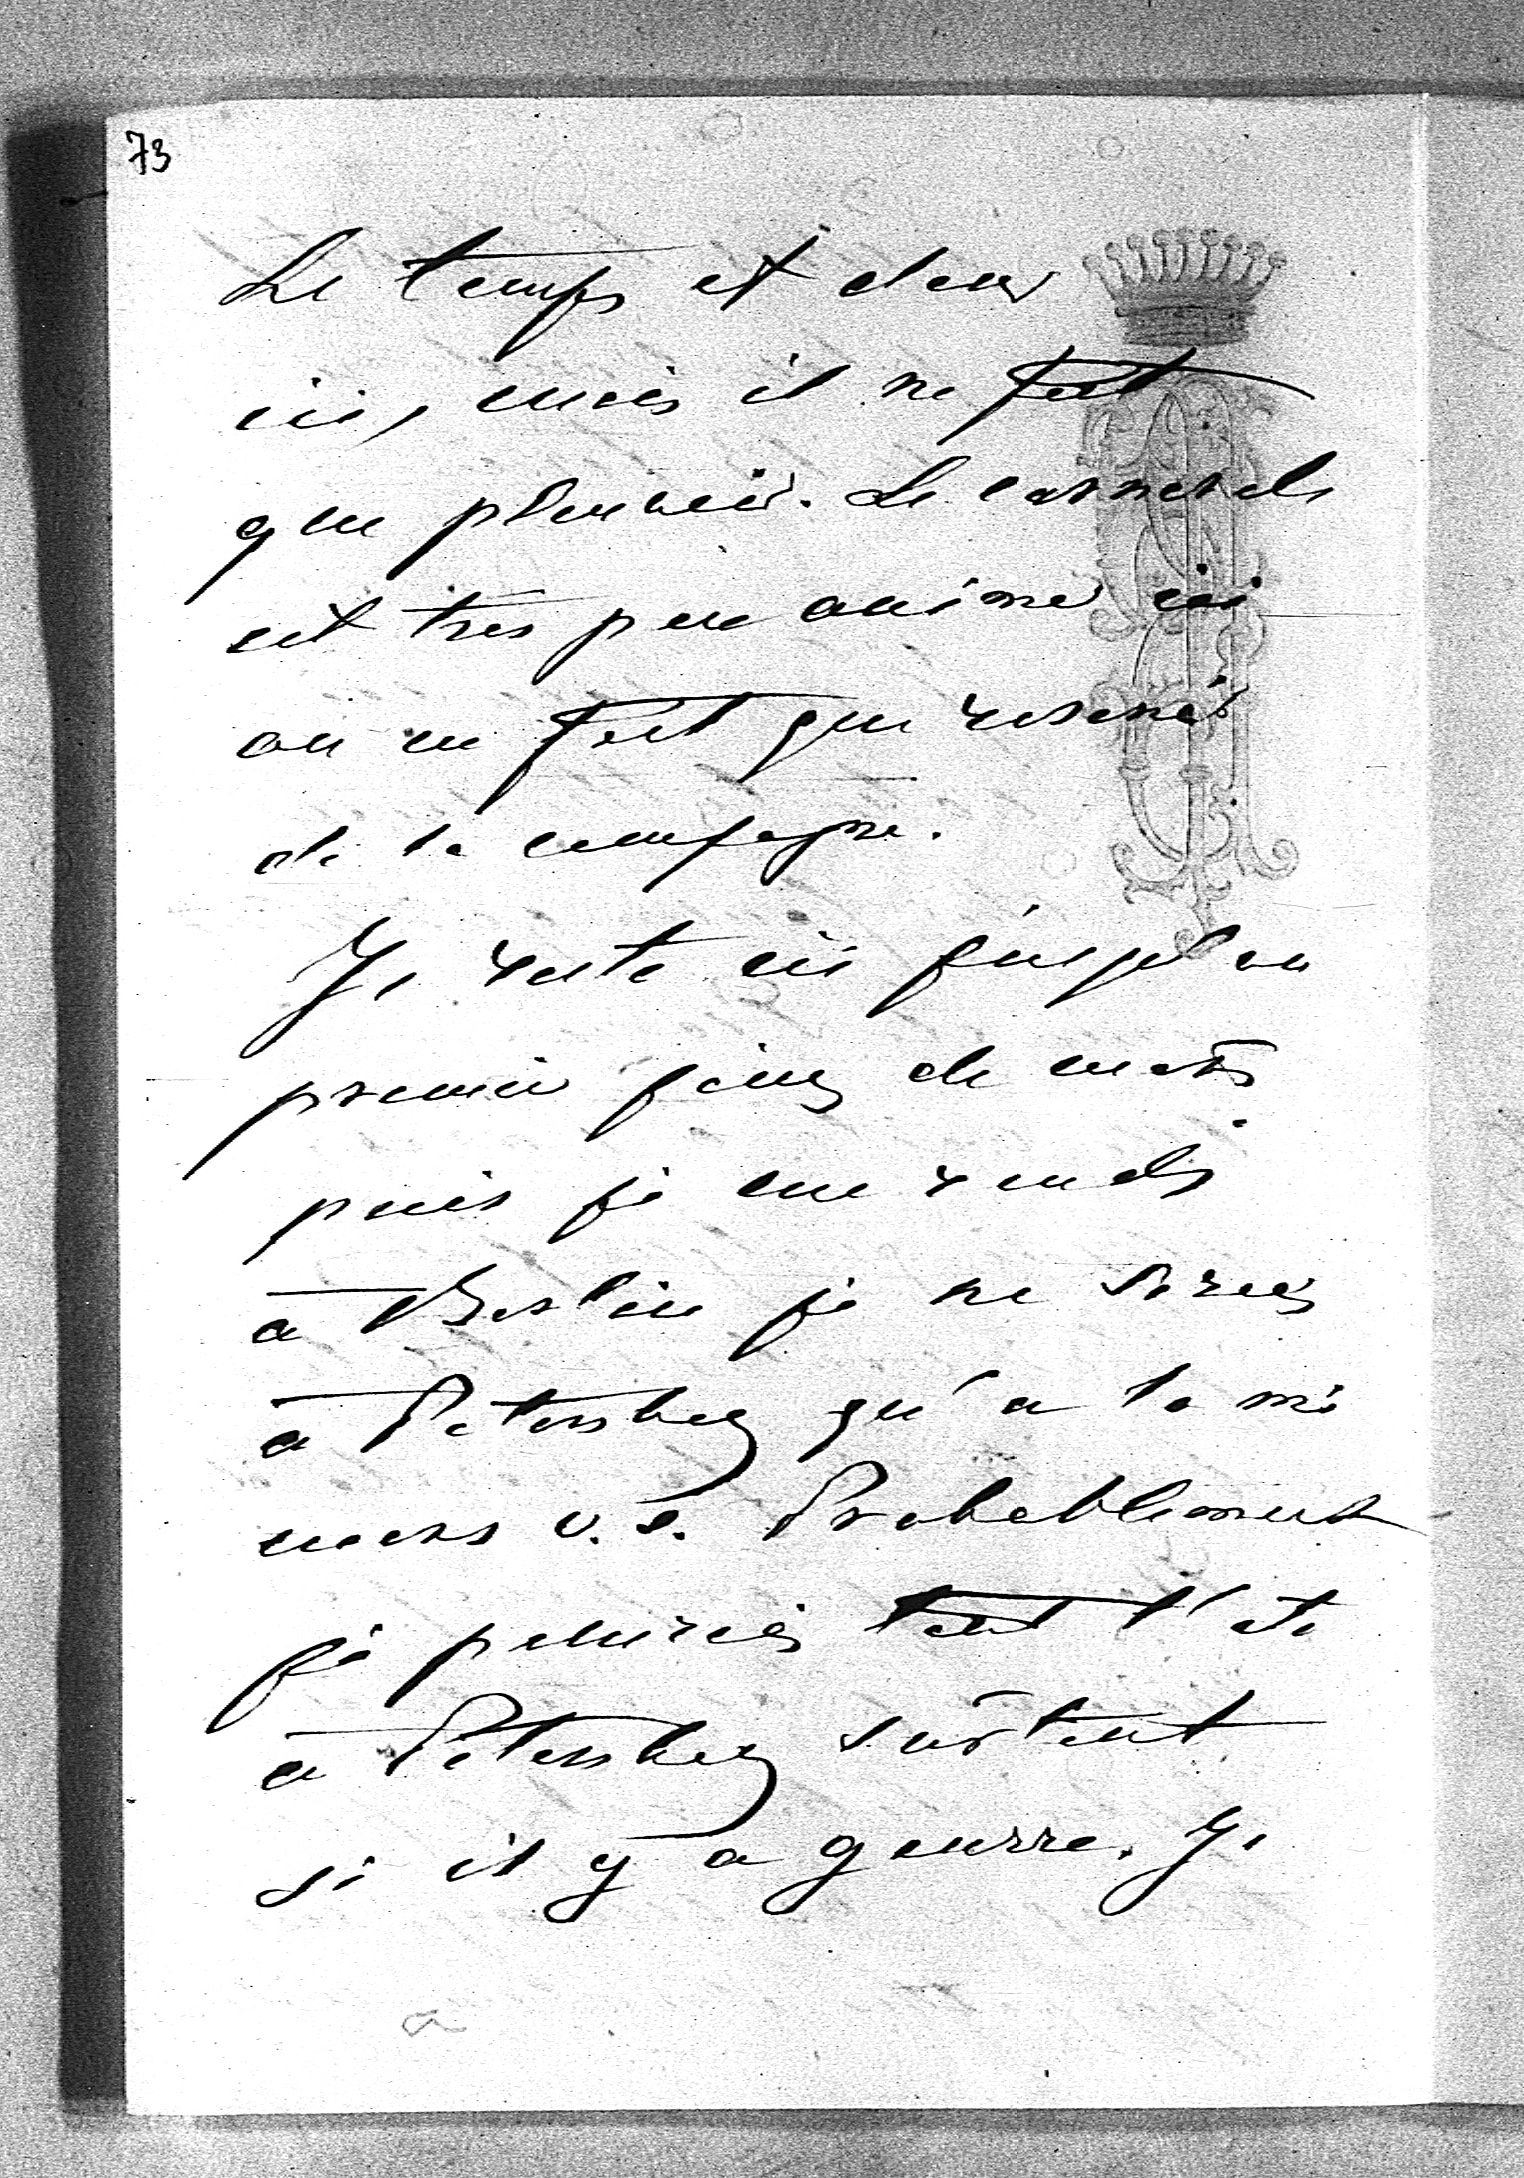 73
Le temps est doux
ici, mais il ne fait
que pleuvoir. Le carnevale
est très peu animé ici
on ne fait que revenir
de la campagne.
Je reste ici jusqu'au
premier jours de mars
puis je me rends
à Berlin je ne serais
à Petersburg qu'a la mi
mars v. s. Probablement
je passerais tout l'été
à Petersburg surtout
si il y a guerre. Je